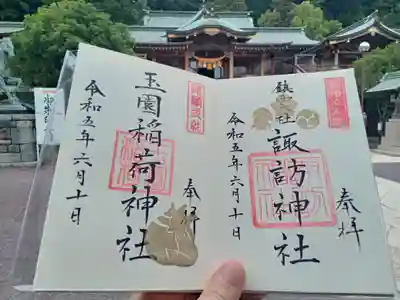 奉拝
諏訪神社
鎮西大社
令和五年六月十日
奉拝
玉園稲荷神社
令和五年六月十日